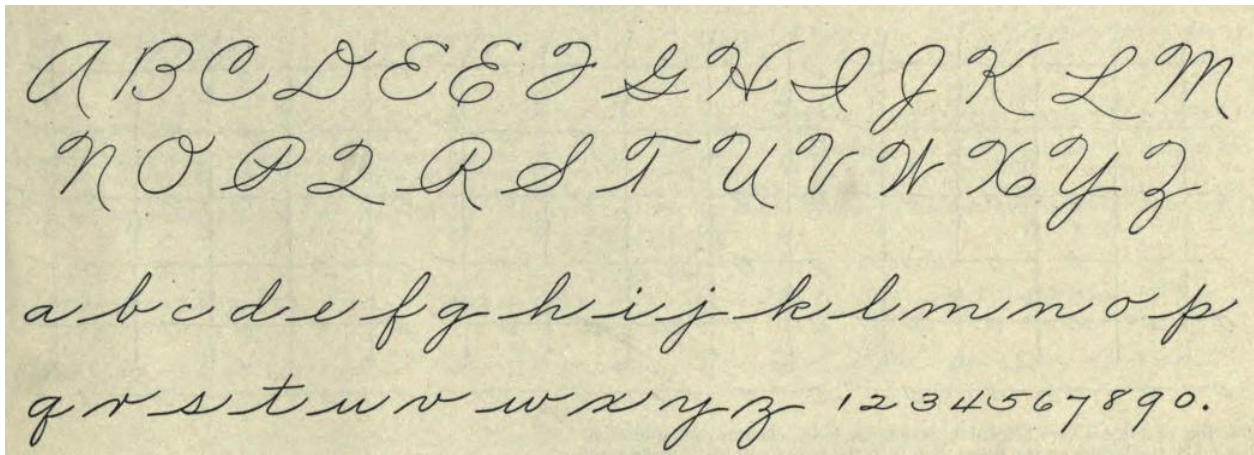 A B C D E E F G H I J K L M
N O P Q R S T U V W X Y Z
a b c d e f g h i j k l m n o p
q r s t u v w x y z 1 2 3 4 5 6 7 8 9 0.